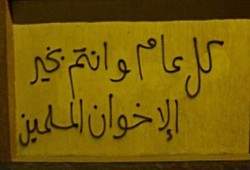 كل عام وانتم بخير
الإخوان المسلمين